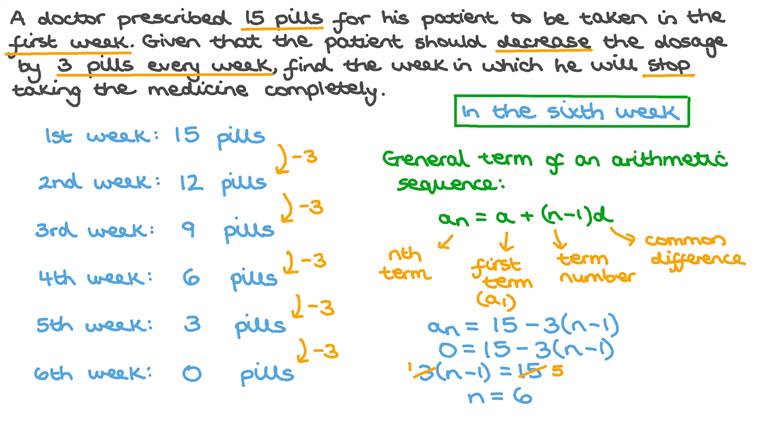 A doctor prescribed 15 pills for his patient to be taken in the
first week. Given that the patient should decrease the dosage
by 3 pills every week, find the week in which he will stop
taking the medicine completely.
In the sixth week
1st week: 15 pills
-3
2nd week: 12 pills
-3
3rd week: 9 pills
-3
4th week: 6 pills
-3
5th week: 3 pills
-3
6th week: 0 pills
General term of an arithmetic
sequence:
an = a + (n-1)d
nth
term
first
term
(a1)
term
number
common
difference
an = 15 - 3(n-1)
0 = 15 - 3(n-1)
1 3(n-1) = 15 5
n = 6